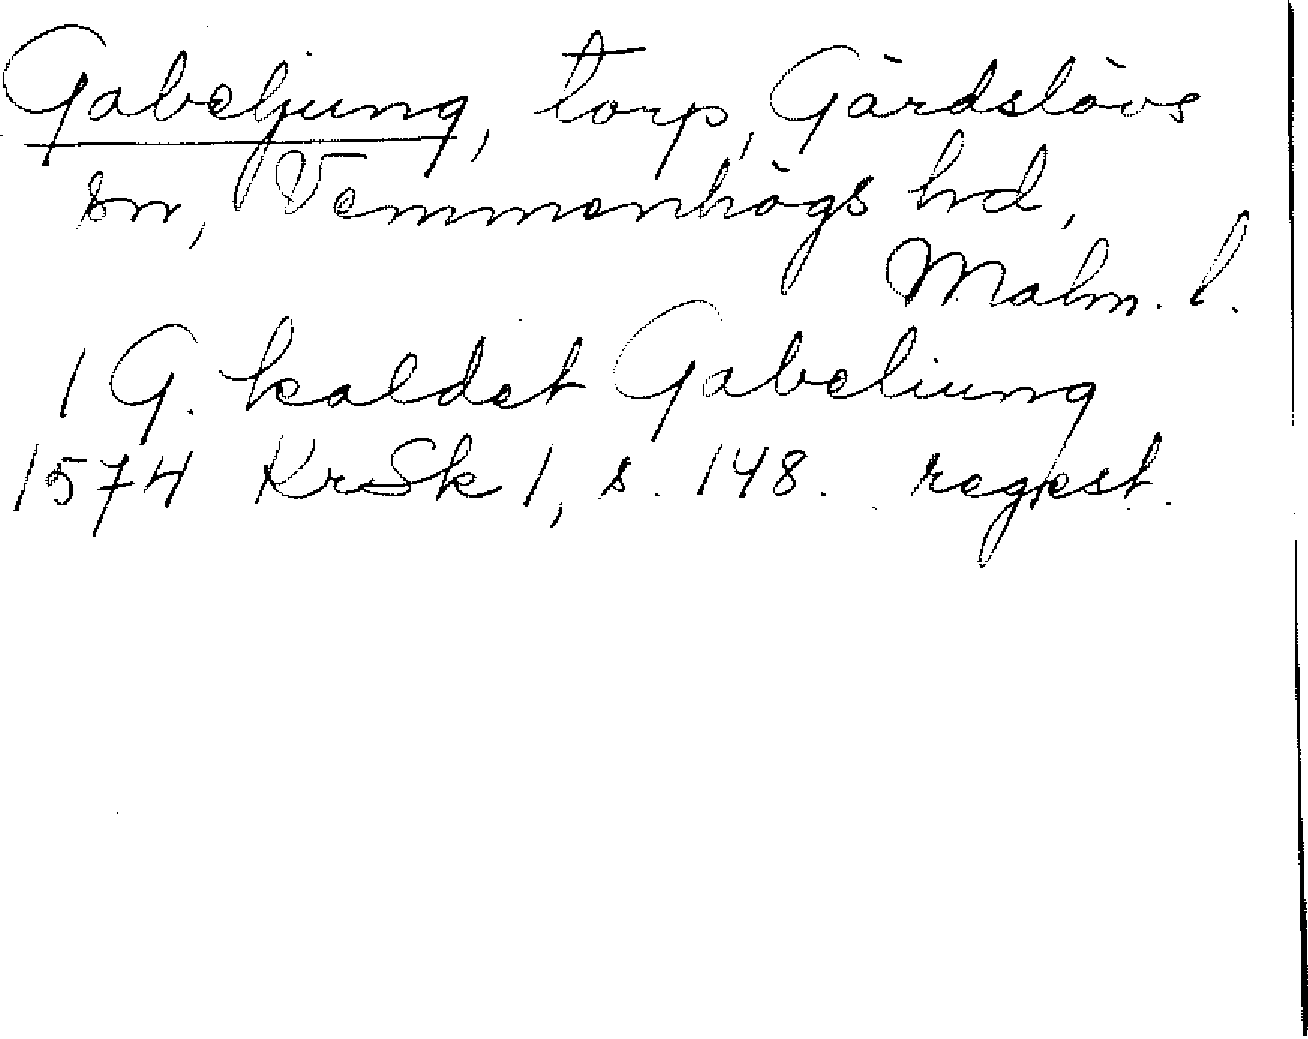 Gabeljung, torp, Gärdslövs
sn, Vemmenhögs hd,
Malm. l.
1 G. kaldet Gabeliung
1574 KrSk 1, s. 148. regest.